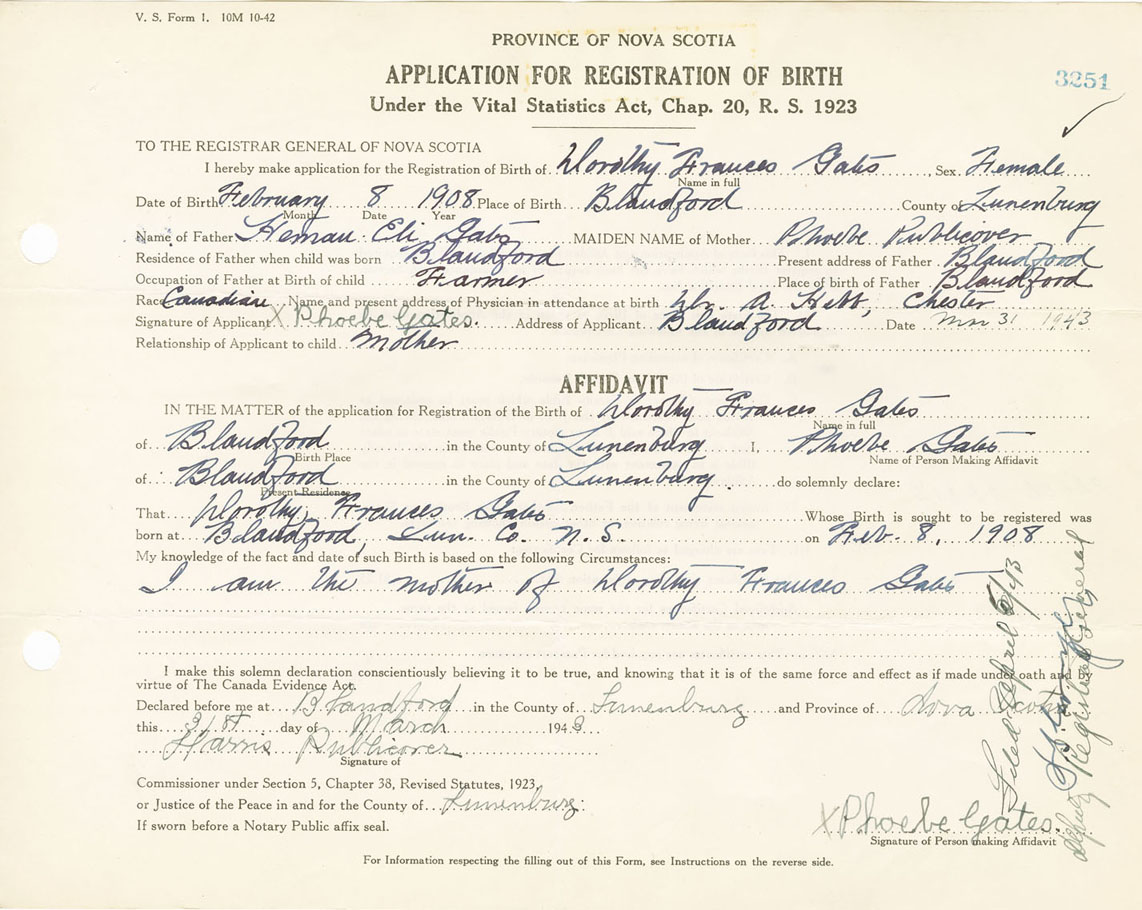 V. S. Form 1. 10M 10-42
PROVINCE OF NOVA SCOTIA
APPLICATION FOR REGISTRATION OF BIRTH
3251
Under the Vital Statistics Act, Chap. 20, R. S. 1923
TO THE REGISTRAR GENERAL OF NOVA SCOTIA
I hereby make application for the Registration of Birth of Dorothy Frances Gates Sex Female
Name in full
Date of Birth February 8 1908 Place of Birth Blandford County of Lunenburg
Month Date Year
Name of Father Heman Eli Gates MAIDEN NAME of Mother Phoebe Publicover
Residence of Father when child was born Blandford Present address of Father Blandford
Occupation of Father at Birth of child Farmer Place of birth of Father Blandford
Race Canadian Name and present address of Physician in attendance at birth Dr. A. Hebb, Chester
Signature of Applicant X Phoebe Gates. Address of Applicant Blandford Date Mar 31 1943
Relationship of Applicant to child Mother
AFFIDAVIT
IN THE MATTER of the application for Registration of the Birth of Dorothy Frances Gates
Name in full
of Blandford in the County of Lunenburg I, Phoebe Gates
Birth Place Name of Person Making Affidavit
of Blandford in the County of Lunenburg do solemnly declare:
Present Residence
That Dorothy Frances Gates Whose Birth is sought to be registered was
born at Blandford, Lun. Co. N. S. on Feb. 8, 1908
My knowledge of the fact and date of such Birth is based on the following Circumstances:
I am the mother of Dorothy Frances Gates
I make this solemn declaration conscientiously believing it to be true, and knowing that it is of the same force and effect as if made under oath and by
virtue of The Canada Evidence Act.
Declared before me at Blandford in the County of Lunenburg and Province of Nova Scotia
this 31st day of March 1943
Harris Publicover
Signature of
Commissioner under Section 5, Chapter 38, Revised Statutes, 1923,
or Justice of the Peace in and for the County of Lunenburg
If sworn before a Notary Public affix seal.
X Phoebe Gates.
Signature of Person making Affidavit
For Information respecting the filling out of this Form, see Instructions on the reverse side.
Filed April /43
Deputy Registrar General